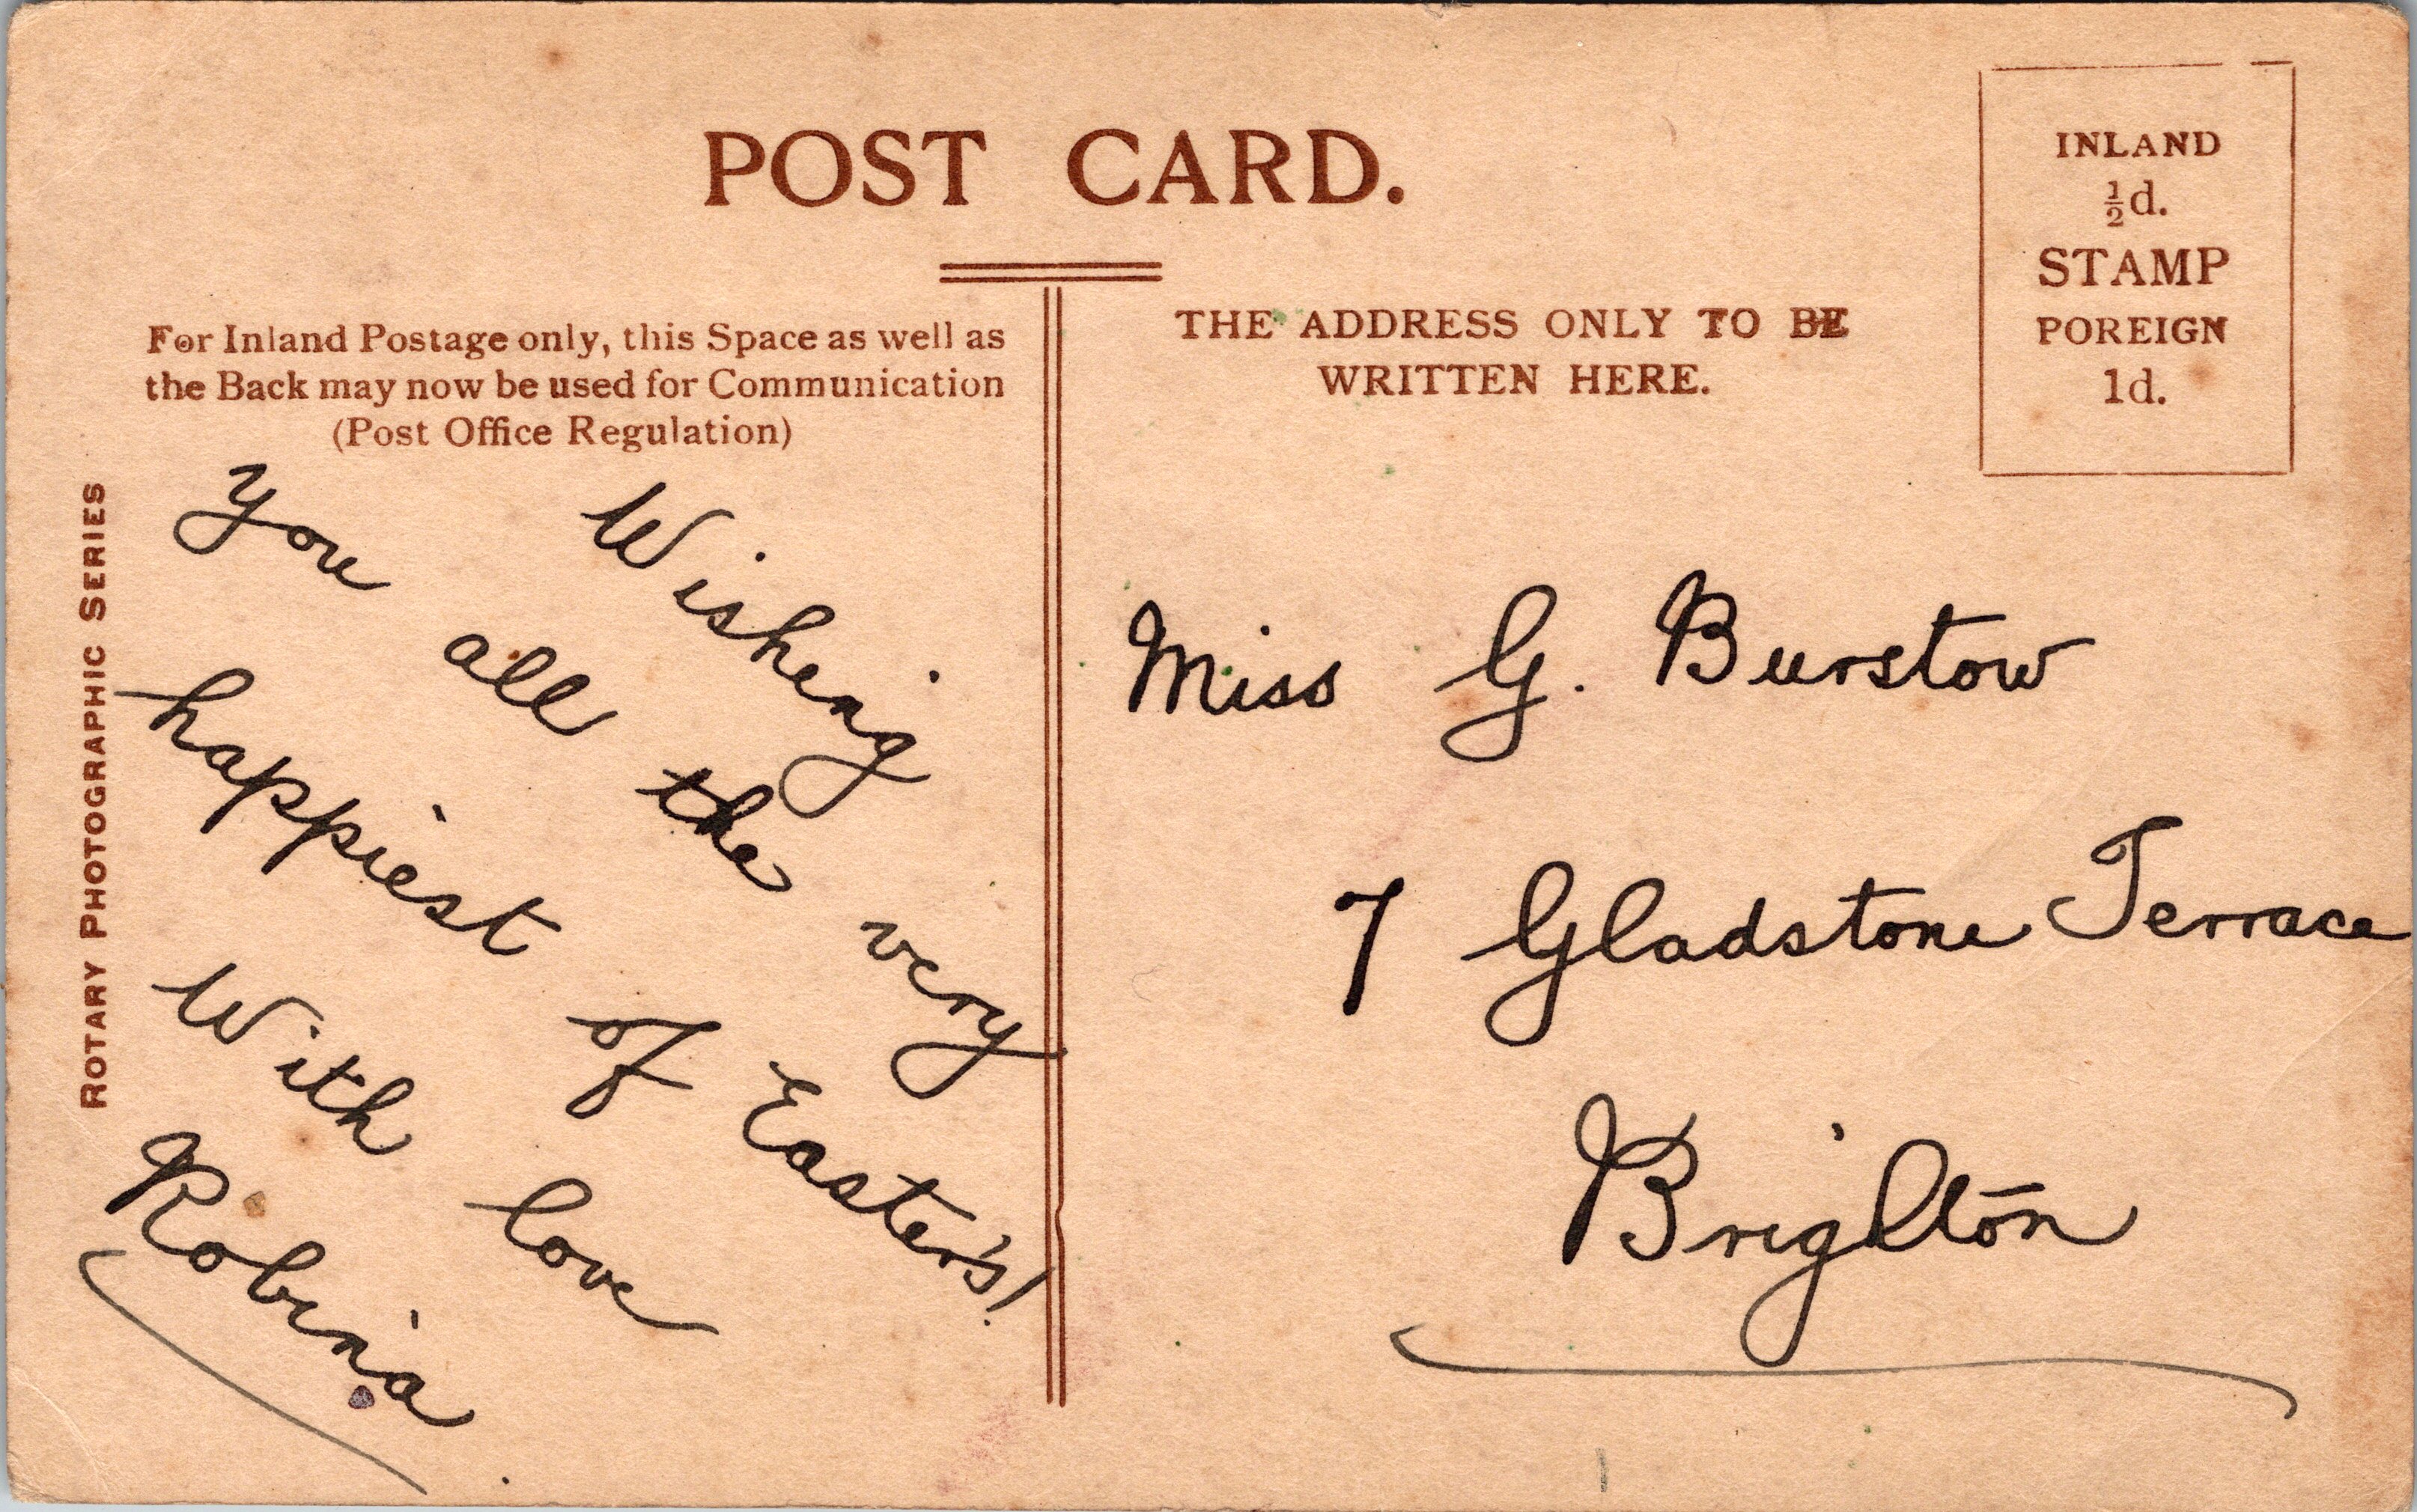 POST CARD.
INLAND
½d.
STAMP
POREIGN
1d.
For Inland Postage only, this Space as well as
the Back may now be used for Communication
(Post Office Regulation)
THE ADDRESS ONLY TO BE
WRITTEN HERE.
ROTARY PHOTOGRAPHIC SERIES
Wishing
you all the very
happiest of Easter's!
With love
Robina
Miss G. Burstow
7 Gladstone Terrace
Brighton